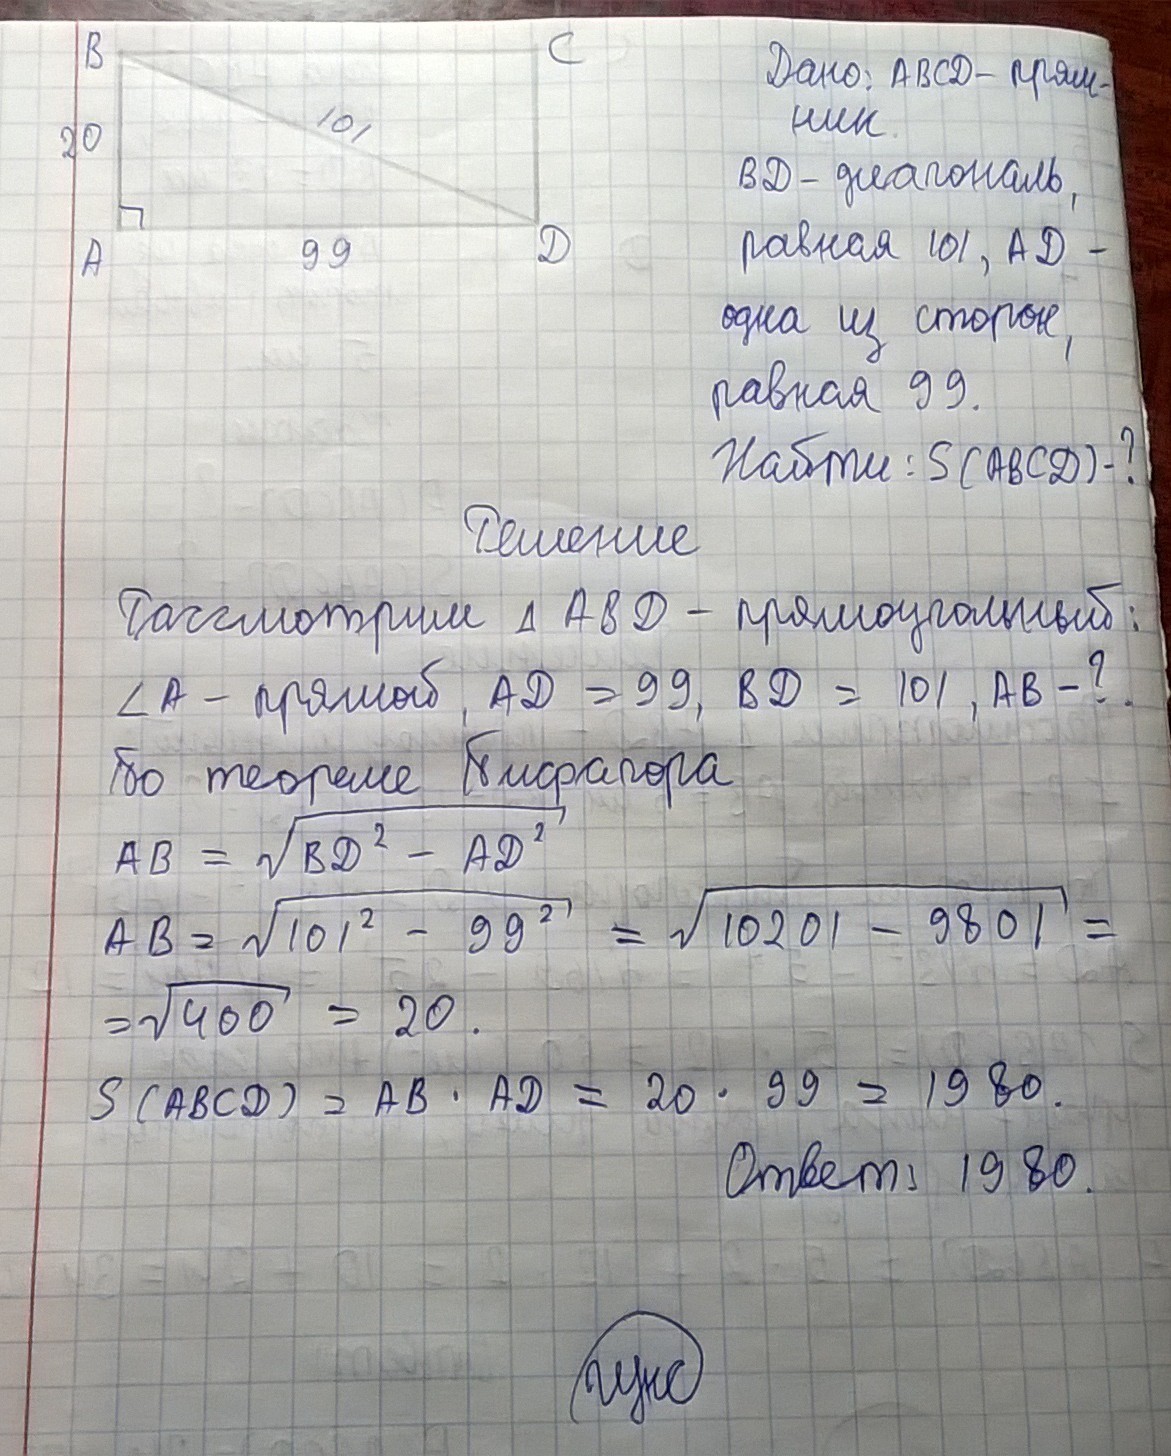 B C
20
101
A 99 D
Дано: ABCD - прям-
ник.
BD - диагональ,
равная 101, AD -
одна из сторон,
равная 99.
Найти: S(ABCD)-?
Решение
Рассмотрим Δ ABD - прямоугольный:
∠A - прямой, AD = 99, BD = 101, AB - ?.
По теореме Пифагора
AB = √(BD² - AD²)
AB = √(101² - 99²) = √(10201 - 9801) =
= √400 = 20.
S(ABCD) = AB · AD = 20 · 99 = 1980.
Ответ: 1980.